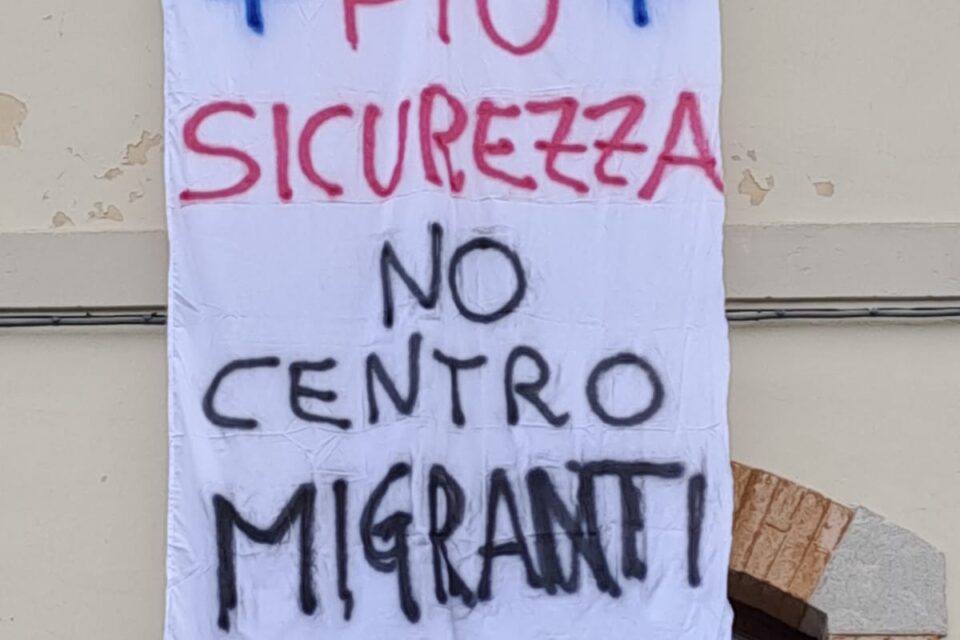 PIÙ
SICUREZZA
NO
CENTRO
MIGRANTI